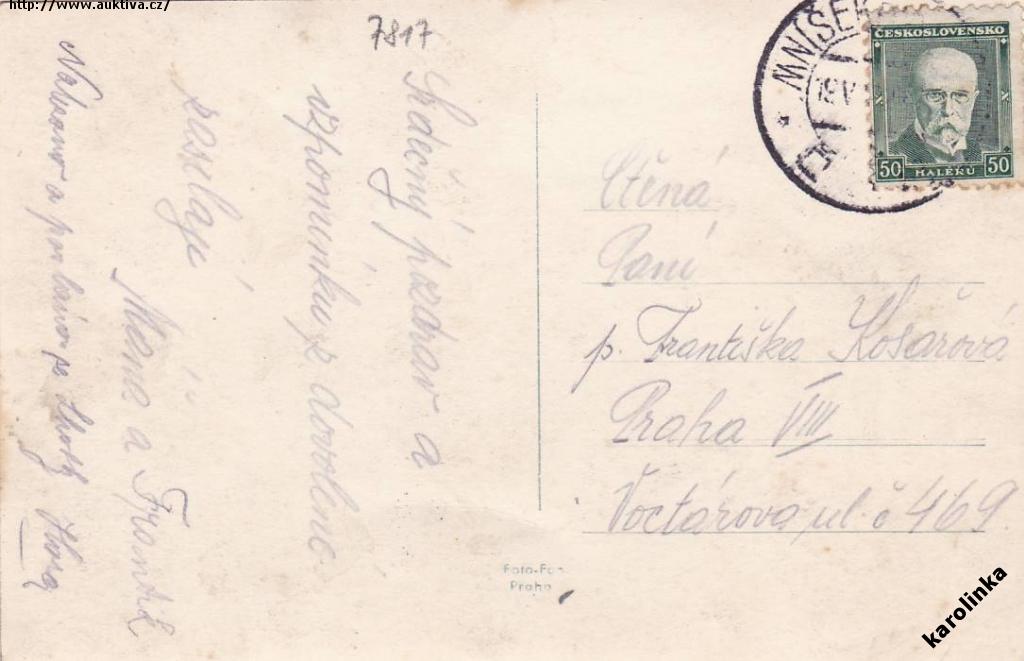 http://www.auktiva.cz/
7817
Srdečný pozdrav a
vzpomínku z dovolené
zasílají
Máňa a Frantík
MNÍŠEK
ČESKOSLOVENSKO
50 HALÉŘŮ 50
Ctěná
Paní
p. Františka Košařová
Praha VIII
Voctářova ul. č 469.
Foto-Fon
Praha
karolinka